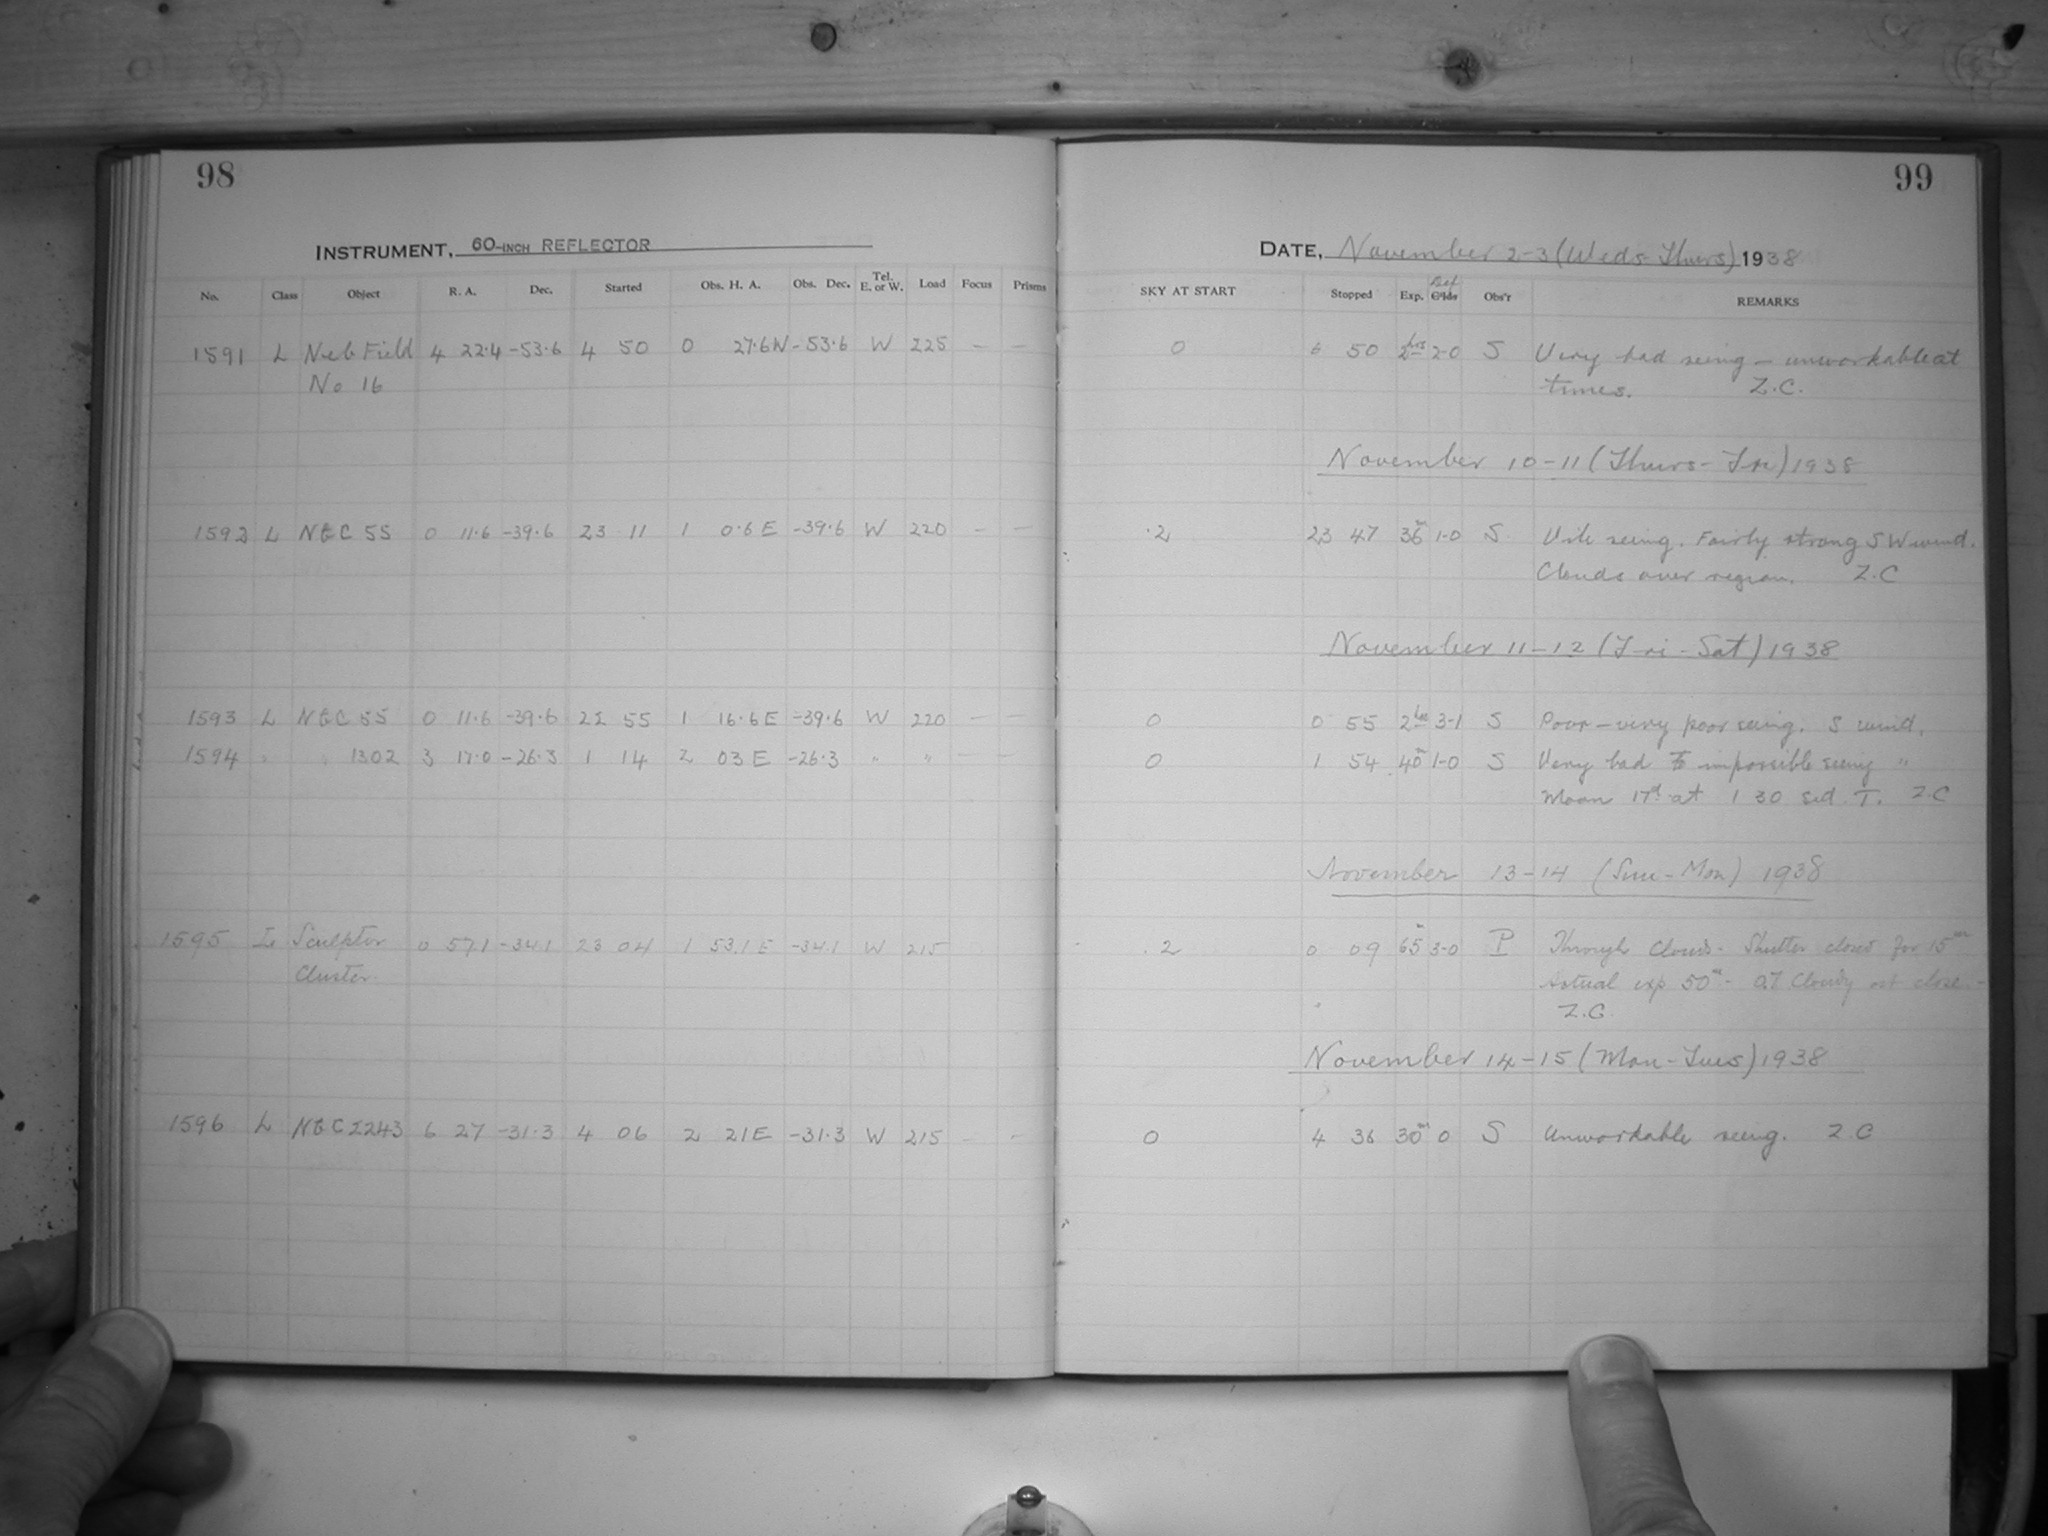 98
INSTRUMENT, 60-INCH REFLECTOR
No. Class Object R. A. Dec. Started Obs. H. A. Obs. Dec. Tel. E. or W. Load Focus Prisms
1591 L Neb Field 4 22.4 -53.6 4 50 0 27.6W -53.6 W 225 — —
No 16
1592 L NGC 55 0 11.6 -39.6 23 11 1 0.6 E -39.6 W 220 — —
1593 L NGC 55 0 11.6 -39.6 22 55 1 16.6 E -39.6 W 220 — —
1594 " " 1302 3 17.0 -26.3 1 14 2 03 E -26.3 " " — —
1595 L Sculptor 0 57.1 -34.1 23 04 1 53.1 E -34.1 W 215
Cluster
1596 L NGC 2243 6 27 -31.3 4 06 2 21 E -31.3 W 215 — —
99
DATE, November 2-3 (Weds-Thurs) 1938
SKY AT START Stopped Exp. Def Obs'r REMARKS
0 6 50 2hrs 2-0 S Very bad seeing — unworkable at
times. Z.C.
November 10-11 (Thurs-Fri) 1938
.2 23 47 36m 1-0 S Vile seeing. Fairly strong SW wind.
Clouds over region. Z.C
November 11-12 (Fri-Sat) 1938
0 0 55 2hrs 3-1 S Poor — very poor seeing. S wind.
0 1 54 40m 1-0 S Very bad to impossible seeing "
Moon 17d at 1 30 Sid. T. Z.C
November 13-14 (Sun-Mon) 1938
.2 0 09 65m 3-0 P Through Clouds - Shutter closed for 15m
Actual exp 50m - 0.7 Cloudy at close. -
Z.C.
November 14-15 (Mon-Tues) 1938
0 4 36 30m 0 S Unworkable seeing. Z.C